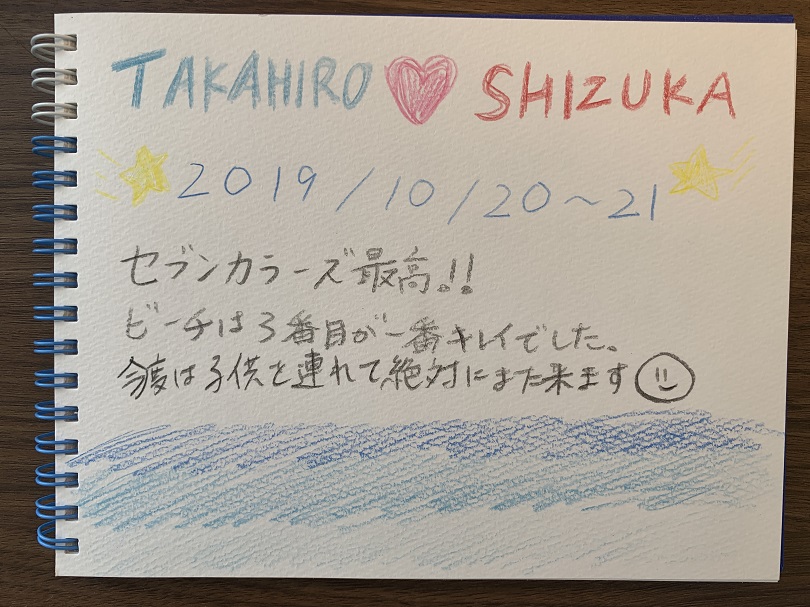 TAKAHIRO ♡ SHIZUKA
2019/10/20~21
セブンカラーズ最高!!
ビーチは3番目が一番キレイでした。
今度は子供を連れて絶対にまた来ます